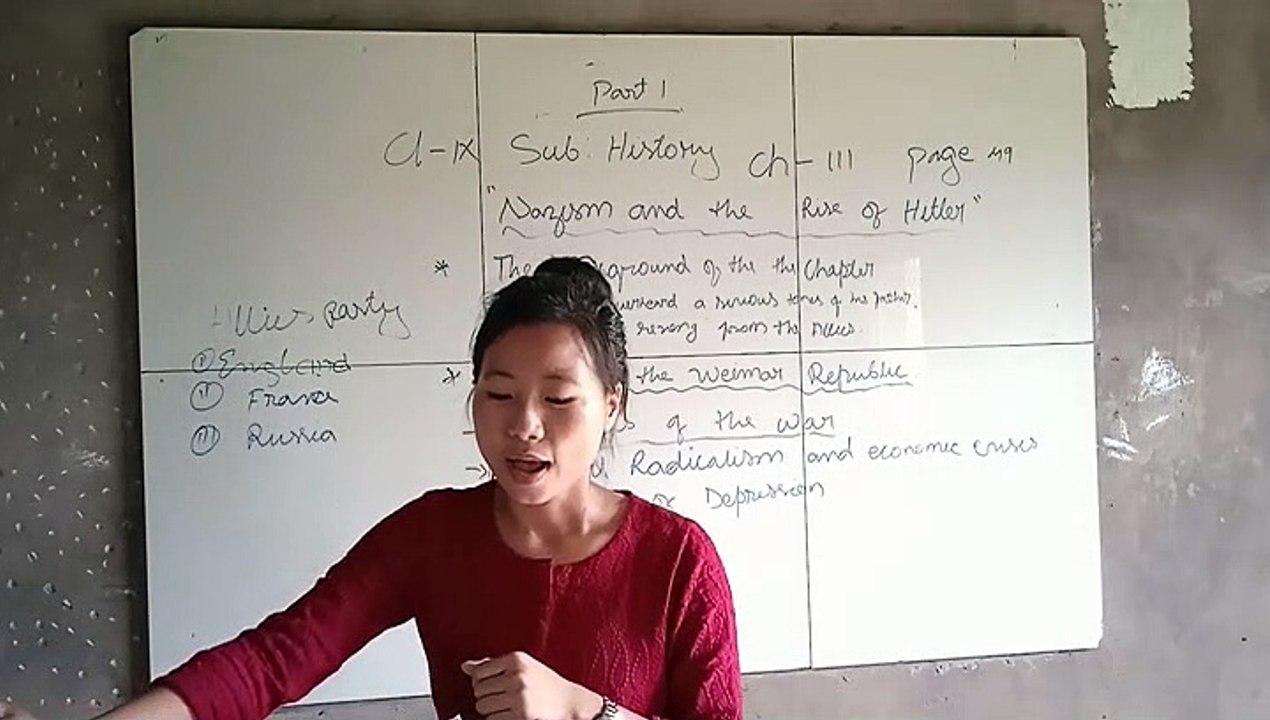 Part 1
Cl-IX Sub: History Ch-III Page 49
"Nazism and the Rise of Hitler"
* The ground of the the Chapter
a serious of the
from the
* the Weimar Republic
of the war
→ Radicalism and economic crises
of Depression
Allies party
(i) England
(ii) France
(iii) Russia